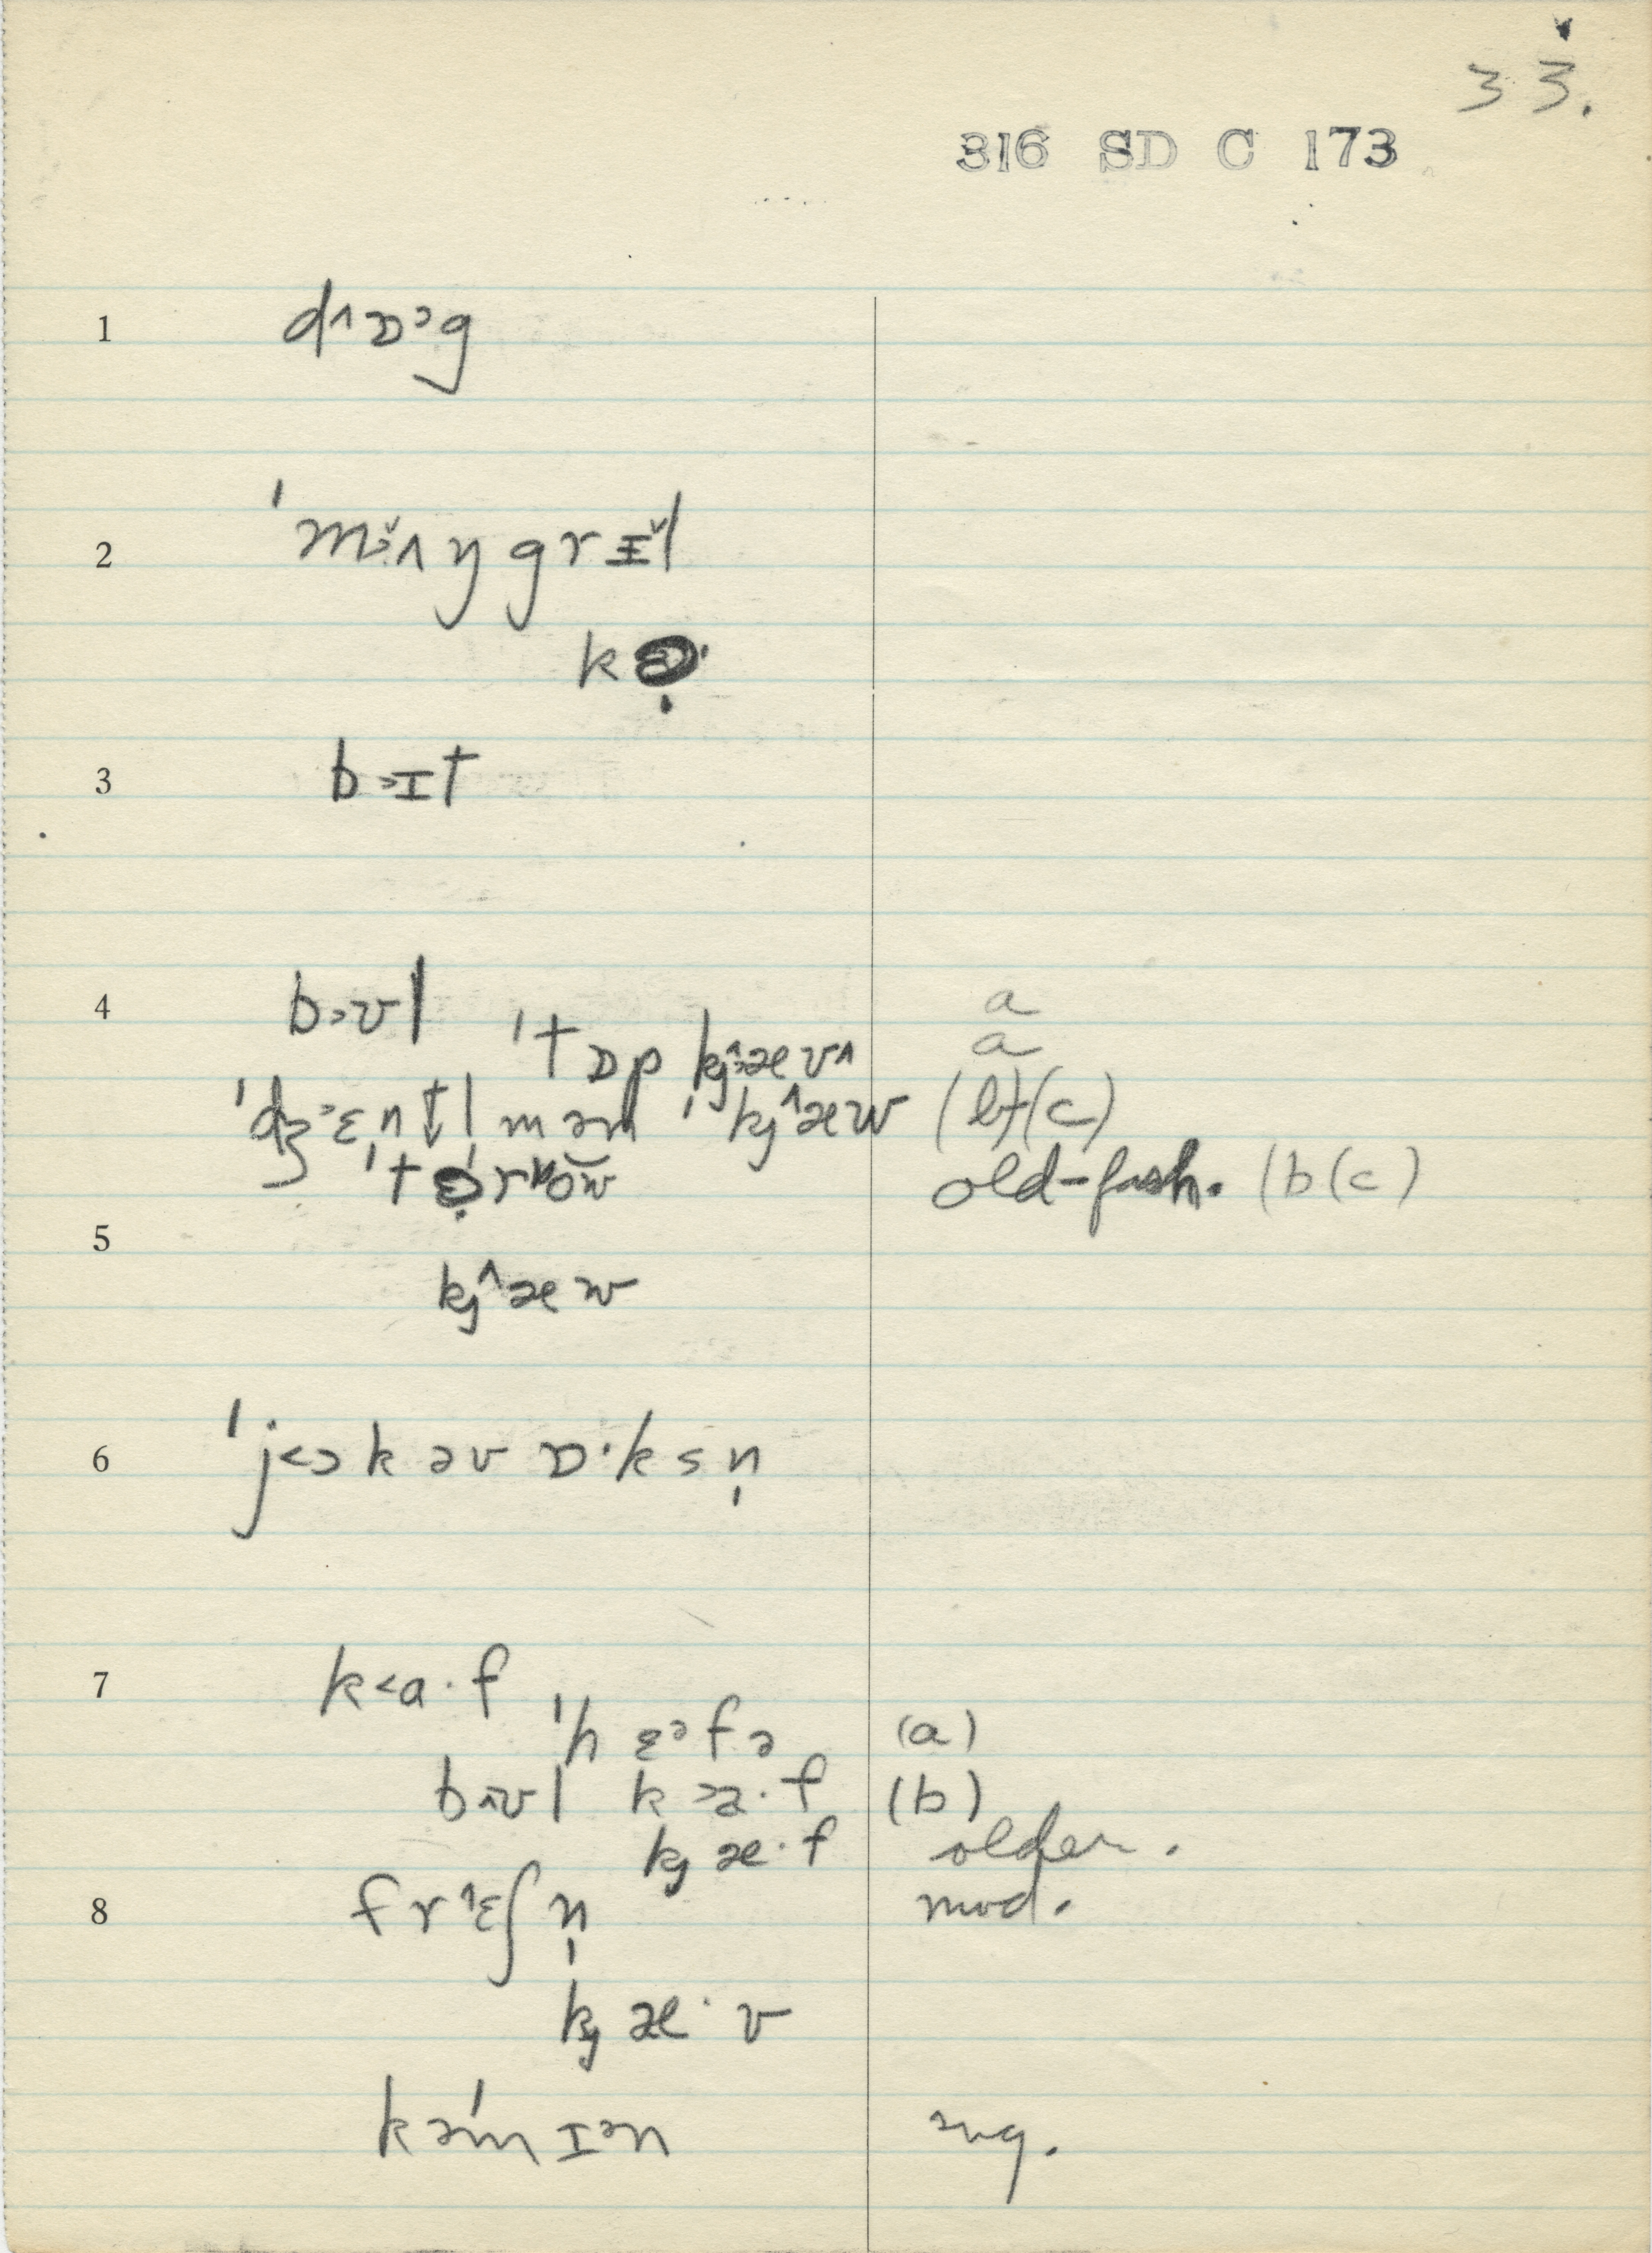 33.
316 SD C 173
1 d^ɒɔg
2 ˈmɔ̌ʌŋgrɪ̌l
kɚ·
3 b>ɪt
4 b>ʊl
ˈtɒp kj^>æʊ^ a
a
ˈdʒ>ɛn̩t↓l məm ˈkj^æw (b)(c)
old-fash. (b(c)
5
kj^æw
6 ˈj<ɔk əv ɒ·ksn̩
7 k<a·f
ˈhɛəfə (a)
b^ʊl k>a·f (b)
kjæ·f older.
8 fr^ɛʃn̩ mod.
kjæ·v
kəˈmɪən sug.